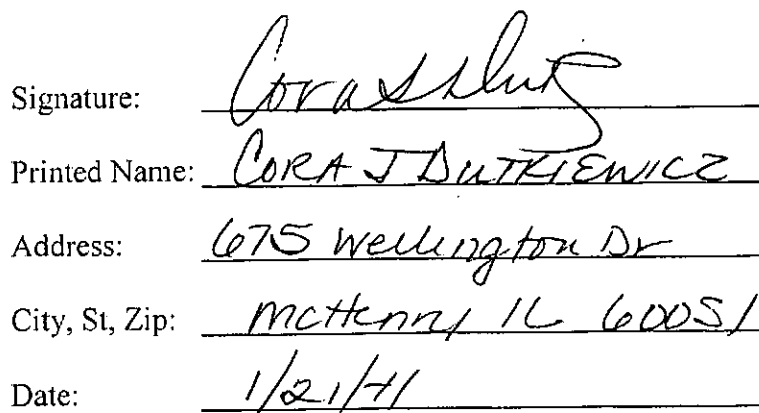 Signature: Cora
Printed Name: CORA J DUTKIEWICZ
Address: 675 Wellington Dr
City, St, Zip: McHenry IL 60051
Date: 1/21/11